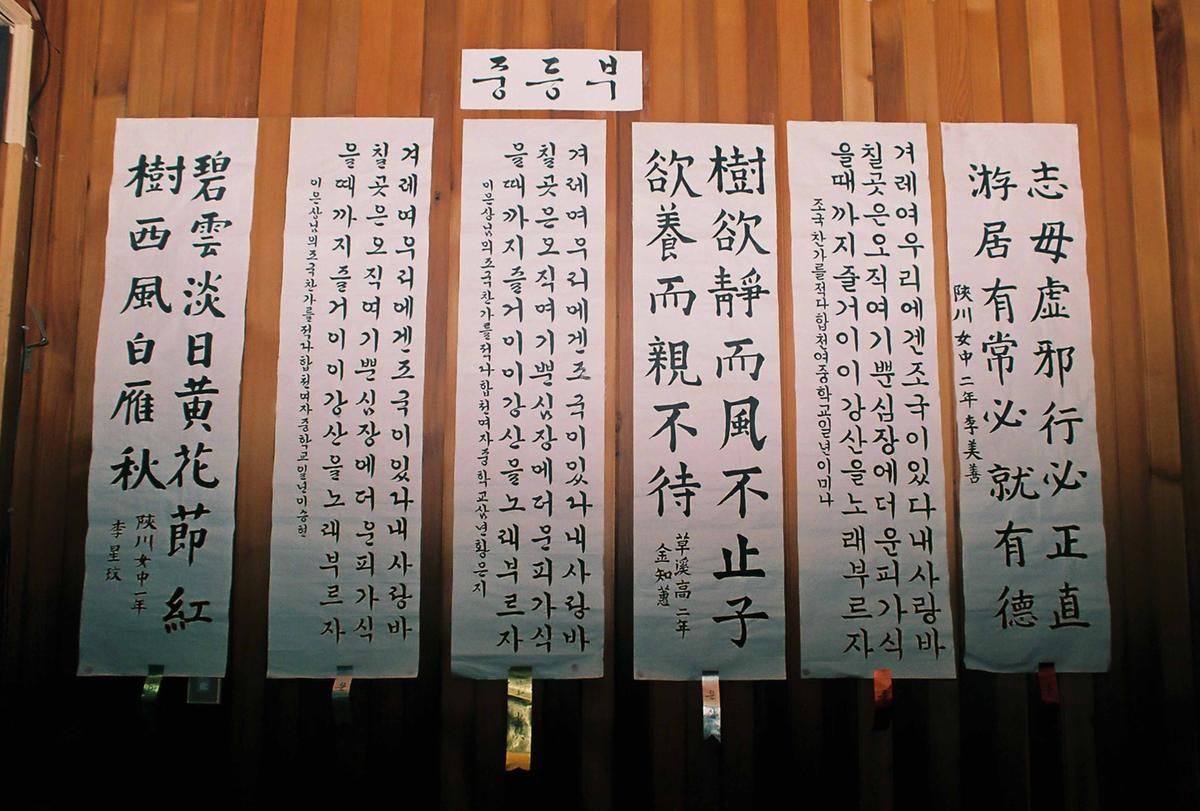 중등부
志毋虛邪行必正直
游居有常必就有德
陜川女中二年李美善
겨레여우리에겐조국이있다내사랑바
칠곳은오직여기뿐심장에더운피가식
을때까지줄거이이강산을노래부르자
조국찬가를적다합천여중학교일년이미나
樹欲靜而風不止子
欲養而親不待
草溪高二年
金知蕙
겨레여우리에겐조국이있다내사랑바
칠곳은오직여기뿐심장에더운피가식
을때까지즐거이이강산을노래부르자
이은상님의조국찬가를적다합천여자중학교삼년황은지
겨레여우리에겐조국이있다내사랑바
칠곳은오직여기뿐심장에더운피가식
을때까지즐거이이강산을노래부르자
이은상님의조국찬가를적다합천여자중학교일년이승헌
碧雲淡日黃花節紅
樹西風白雁秋
陜川女中一年
李星